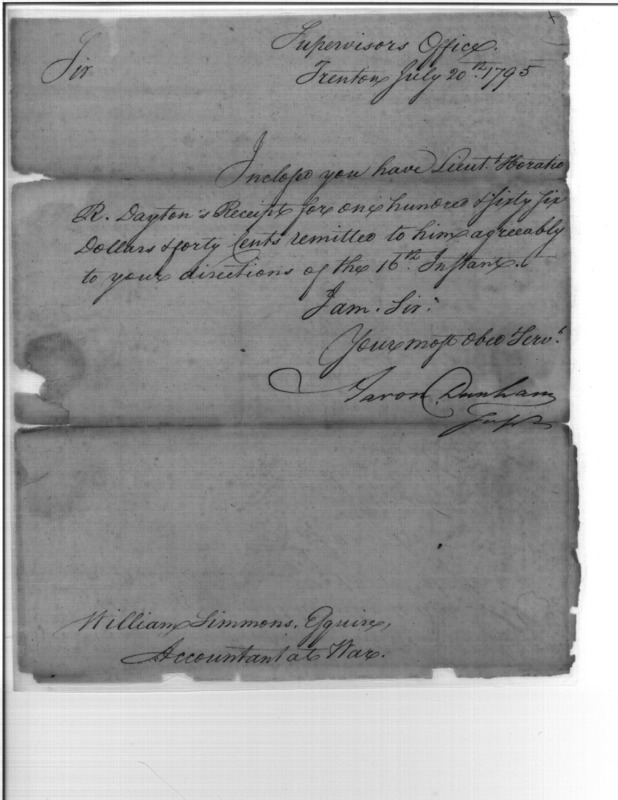 Supervisors Office.
Sir Trenton July 20th. 1795
Inclosd you have Lieut. Horatio
R. Dayton's Receipt for one hundred & sixty six
Dollars & forty Cents remitted to him agreeably
to your directions of the 16th. Instant.
I am. Sir.
Your most Obed Servt.
Aaron Dunham
William Simmons, Esquire,
Accountant at War.